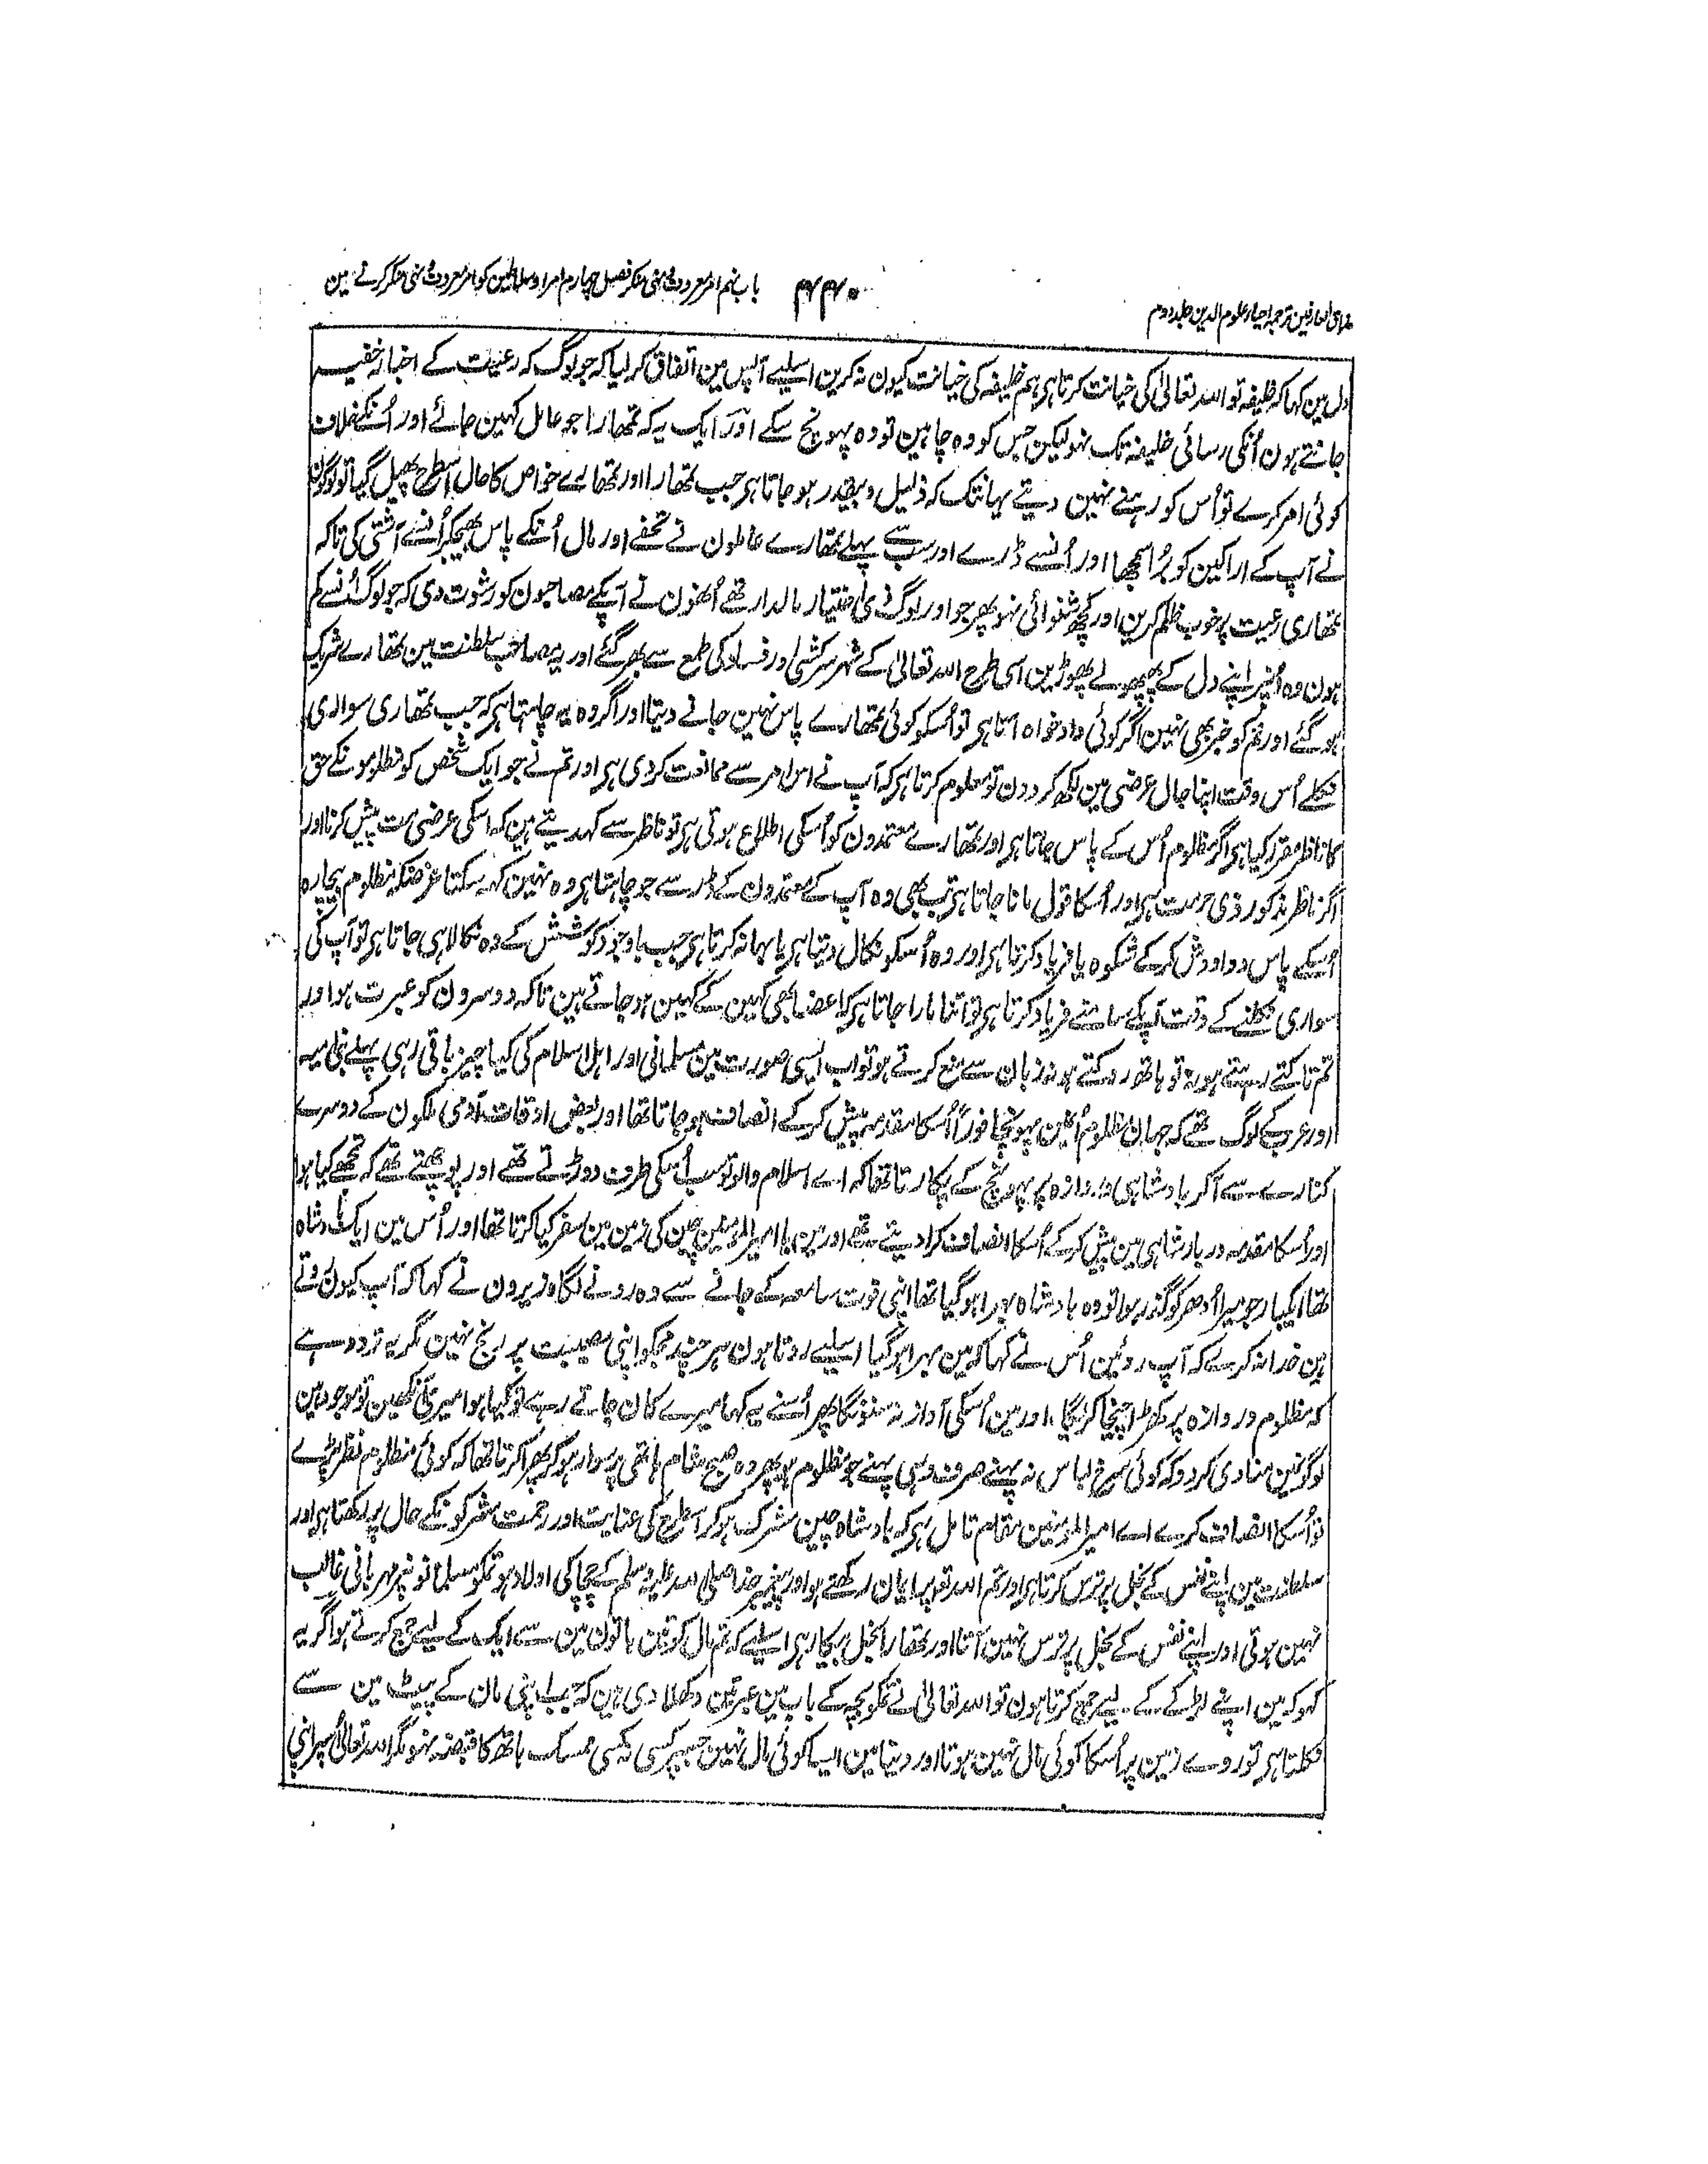 مذاق العارفین ترجمہ احیاء علوم الدین جلد دوم
۴۴۰
باب نہم امر معروف و نہی منکر فصل چہارم امرا و سلاطین کو امر معروف و نہی منکر کرنے مین
دل مین کہا کہ خلیفہ تو اللہ تعالیٰ کی خیانت کرتا ہی ہم خلیفہ کی خیانت کیون نہ کرین اسلیے آپس مین اتفاق کر لیا کہ جو لوگ کہ رعیت کے اخبار خفیہ
جانتے ہون اُنکی رسائی خلیفہ تک نہو لیکن جس کو وہ چاہین تو وہ پہونچ سکے اور ایک یہ کہ تمھارا جو عامل کہین جائے اور اُنکے خلاف
کوئی امر کرے تو اُس کو رہنے نہین دیتے یہانتک کہ ذلیل و بیقدر ہو جاتا ہی جب تمھارا اور تمھارے خواص کا حال اسطرح پھیل گیا تو لوگون
نے آپ کے اراکین کو بڑا سمجھا اور اُنسے ڈرے اور سب سے پہلے تمھارے عاملون نے تحفے اور مال اُنکے پاس بھیجکر اُنسے آشتی کی تاکہ
تمھاری رعیت پر خوب ظلم کرین اور کچھ شنوائی نہو پھر جو اور لوگ ذی اختیار مالدار تھے اُنھون نے آپکے مصاحبون کو رشوت دی کہ جو لوگ اُنسے کم
ہون وہ اُنپر اپنے دل کے پھپھولے پھوڑین اسی طرح اللہ تعالیٰ کے شہر سرکشی اور فساد کی طمع سے بھر گئے اور یہ مصاحب سلطنت مین تمھارے شریک
ہو گئے اور تم کو خبر بھی نہین اگر کوئی دادخواہ آتا ہی تو اُسکو کوئی تمھارے پاس نہین جانے دیتا اور اگر وہ یہ چاہتا ہی کہ جب تمھاری سواری
نکلے اُس وقت اپنا حال عرضی مین لکھ کر دون تو معلوم کرتا ہی کہ آپ نے اس امر سے ممانعت کر دی ہی اور تم نے جو ایک شخص کو مظلومونکے حق
کا ناظر مقرر کیا ہی اگر مظلوم اُس کے پاس جاتا ہی اور تمھارے معتمدون کو اُسکی اطلاع ہوتی ہی تو ناظر سے کہدیتے ہین کہ اسکی عرضی مت پیش کرنا اور
اگر ناظر مذکور ذی حرمت ہی اور اُسکا قول مانا جاتا ہی تب بھی وہ آپ کے معتمدون کے ڈر سے جو چاہتا ہی وہ نہین کہہ سکتا غرضکہ مظلوم بیچارہ
اُسکے پاس دوا دوش کر کے شکوہ یا فریاد کرتا ہی اور وہ اُسکو نکال دیتا ہی یا بہانہ کرتا ہی جب باوجود کوشش کے وہ نکالا ہی جاتا ہی تو آپ کی
سواری نکلنے کے وقت آپکے سامنے فریاد کرتا ہی تو اتنا مارا جاتا ہی کہ اعضا بھی کہین کے کہین ہو جاتے ہین تاکہ دوسرون کو عبرت ہو اور
تم تاکتے رہتے ہو نہ تو ہاتھ روکتے ہو نہ زبان سے منع کرتے ہو تو اب ایسی صورت مین مسلمانی اور اہل اسلام کی کیا چیز باقی رہی پہلے بنی امیہ
اور عرب کے لوگ تھے کہ جہان مظلوم اُنمین پہونچا فوراً اُسکا مقدمہ پیش کر کے انصاف ہو جاتا تھا اور بعض اوقات آدمی ملکون کے دوسرے
کنارے سے آکر بادشاہی دروازہ پر پہونچ کے پکارتا تھا کہ اے اسلام والو تو سب اُسکی طرف دوڑتے تھے اور پوچھتے تھے کہ تجھے کیا ہوا
اور اُسکا مقدمہ دربار شاہی مین پیش کر کے اُسکا انصاف کرا دیتے تھے اور مین یا امیر المومنین چین کی زمین مین سفر کیا کرتا تھا اور اُس مین ایک بادشاہ
تھا ایکبار جو میرا اُدھر کو گذر ہوا تو وہ بادشاہ بہرا ہو گیا تھا اپنی قوت سامعہ کے جانے سے وہ رونے لگا وزیرون نے کہا کہ آپ کیون روتے
ہین خدا نہ کرے کہ آپ روئین اُس نے کہا کہ مین بہرا ہو گیا اسلیے روتا ہون ہر چند مجکو اپنی مصیبت پر رنج نہین مگر یہ تردد ہے
کہ مظلوم دروازہ پر کھڑا چیخا کریگا اور مین اُسکی آواز نہ سنونگا پھر اُسنے یہ کہا میرے کان جاتے رہے تو کیا ہوا میری آنکھین تو موجود ہین
لوگونمین منادی کر دو کہ کوئی سرخ لباس نہ پہنے صرف وہی پہنے جو مظلوم ہو پھر وہ صبح شام ہاتھی پر سوار ہو کر پھرا کرتا تھا کہ کوئی مظلوم نظر پڑے
تو اُسکا انصاف کرے اے امیر المومنین مقام تامل ہی کہ بادشاہ چین مشرک ہو کر اسطرح کی عنایت اور رحمت مشرکونکے حال پر رکھتا ہی اور
سلطنت مین اپنے نفس کے بخل پر ترس کرتا ہی اور تم اللہ تعہ پر ایمان رکھتے ہو اور پیغمبر خدا صلی اللہ علیہ وسلم کے چچا کی اولاد ہو تمکو مسلمانونپر مہربانی غالب
نہین ہوتی اور اپنے نفس کے بخل پر ترس نہین آتا اور تمھارا بخل بیکار ہی اسلیے کہ تم مال کو تین باتون مین سے ایک کے لیے جمع کرتے ہو اگر یہ
کہو کہ مین اپنے لڑکے کے لیے جمع کرتا ہون تو اللہ تعالیٰ نے تمکو بچہ کے باب مین عبرتین دکھلا دی ہین کہ جب اپنی مان کے پیٹ مین سے
نکلتا ہی تو روے زمین پر اُسکا کوئی مال نہین ہوتا اور دنیا مین ایسا کوئی مال نہین جسپر کسی نہ کسی ممسک ہاتھ کا قبضہ نہو مگر اللہ تعالیٰ اُسپر اپنی